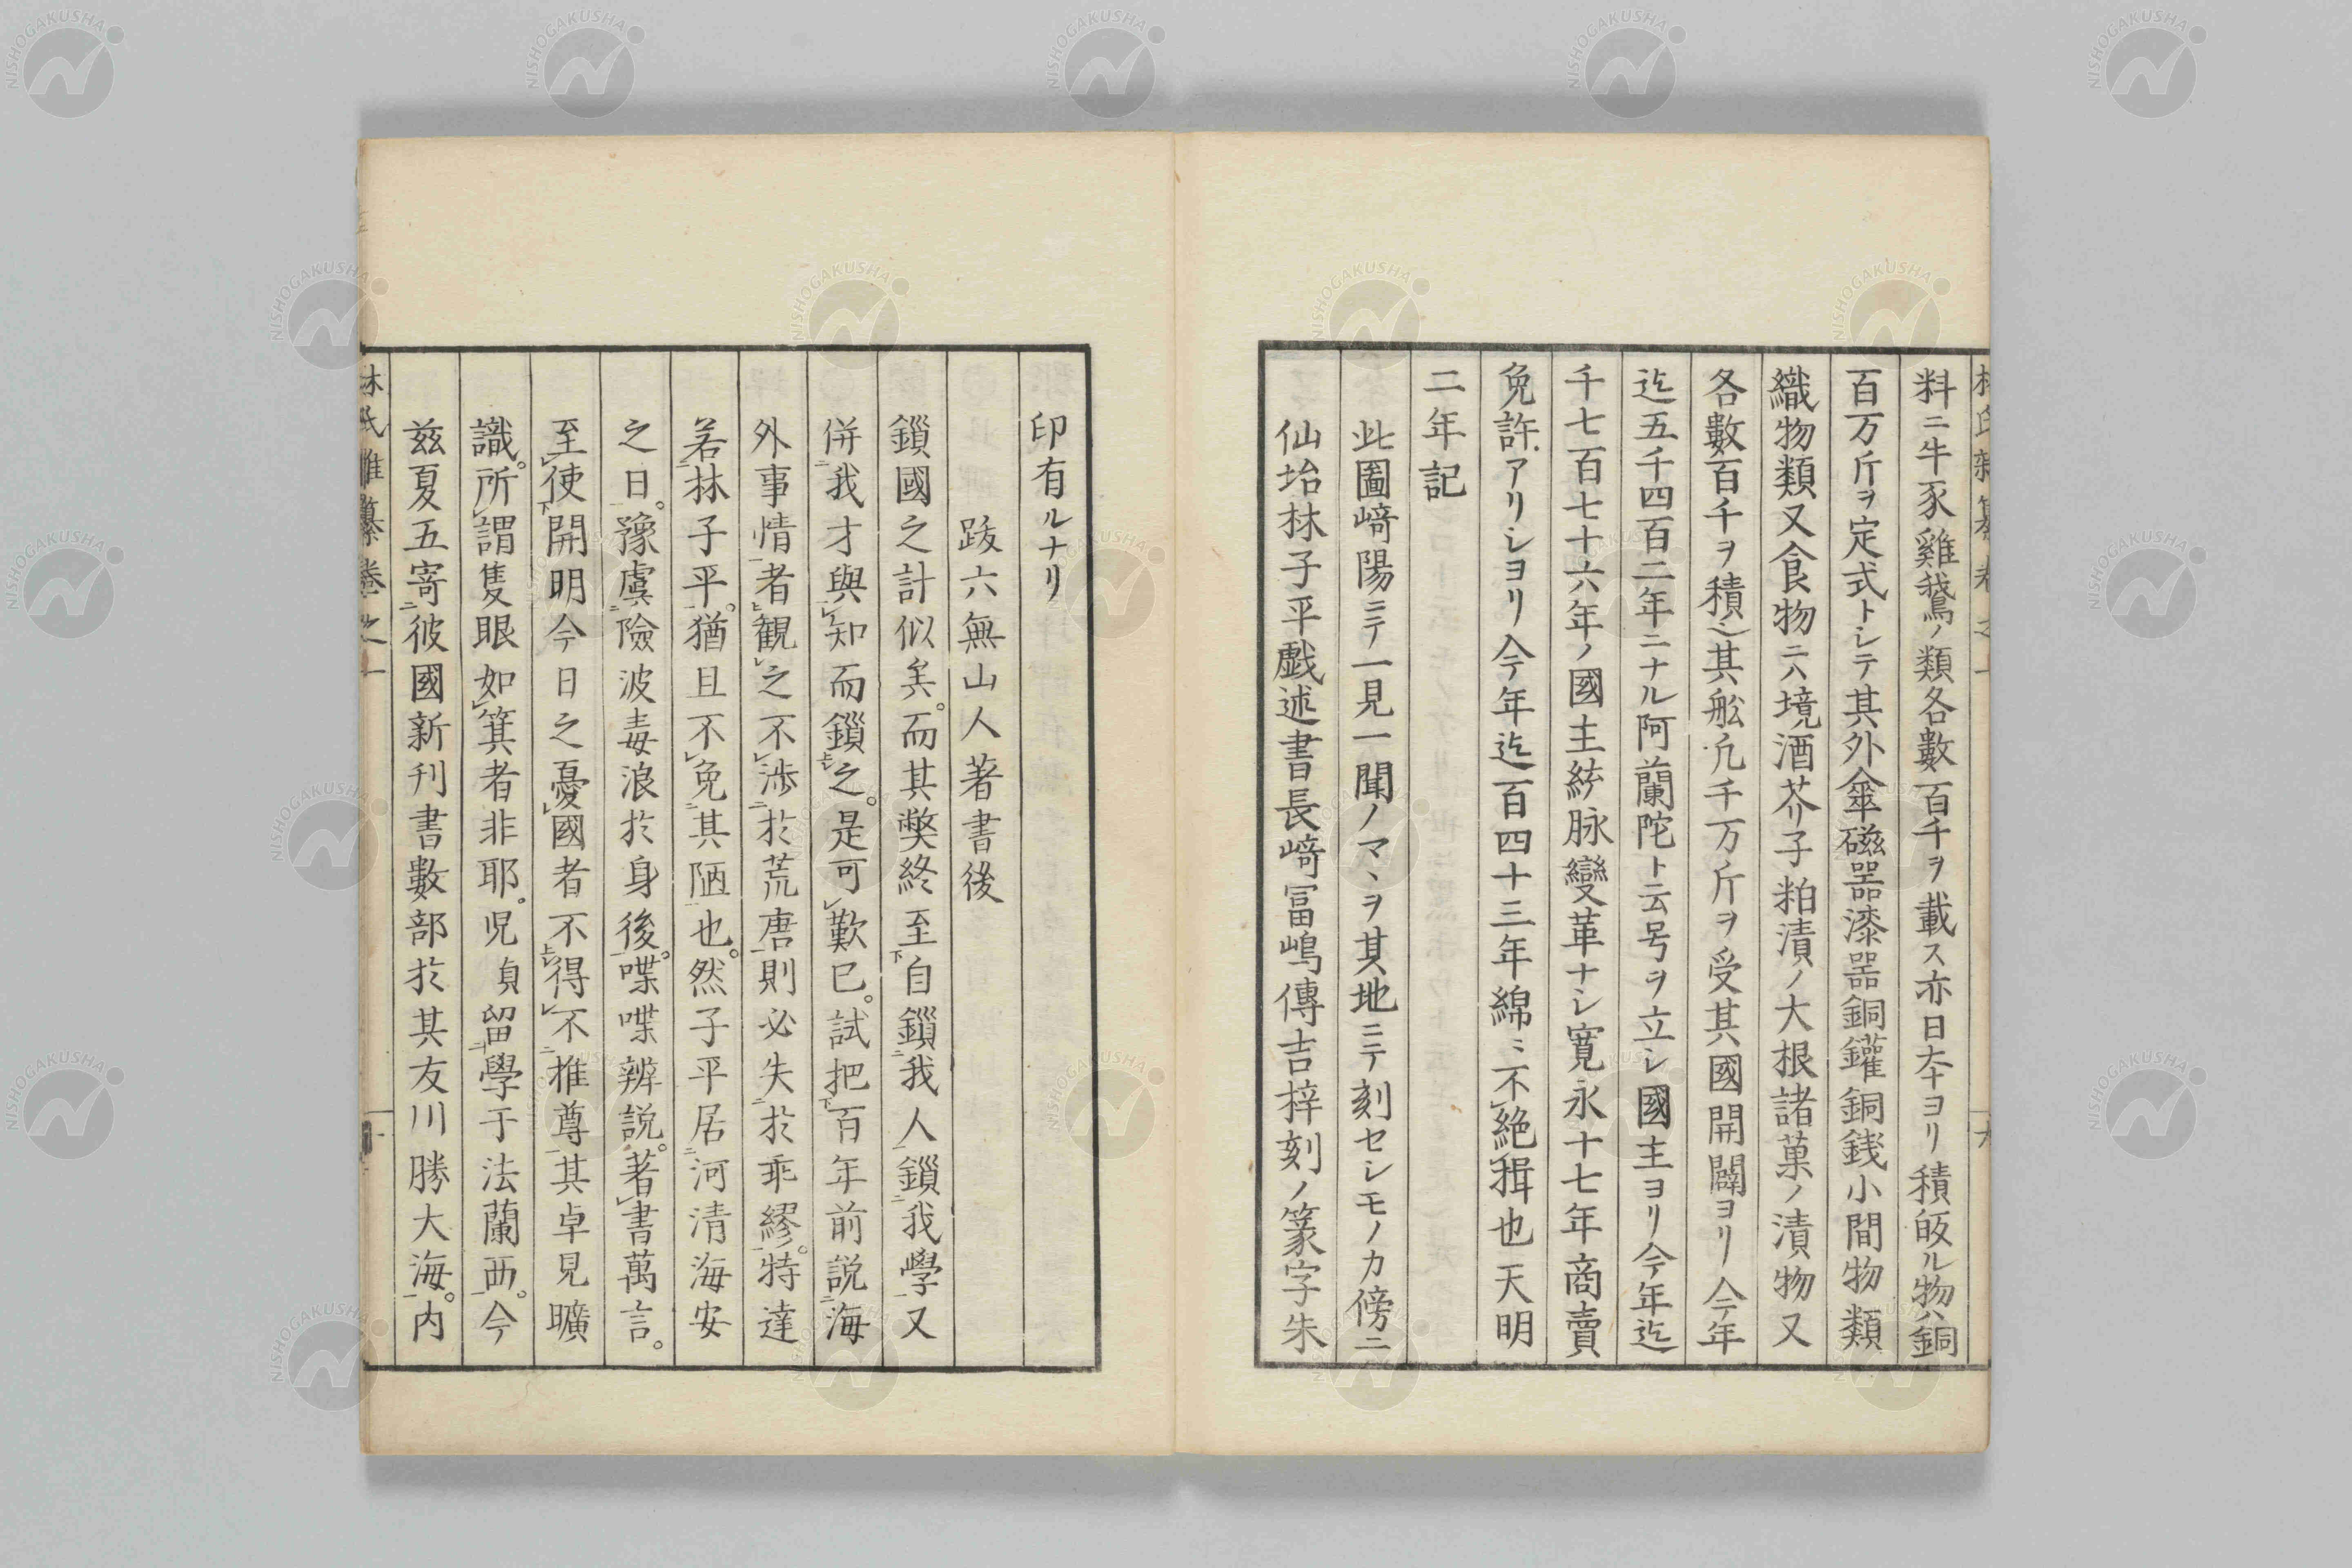 料ニ牛豕雞鵞ノ類各數百千ヲ載ス亦日本ヨリ積皈ル物ハ銅
百万斤ヲ定式トシテ其外傘磁器漆器銅鑵銅銭小間物類
織物類又食物ニハ境酒芥子粕漬ノ大根諸菓ノ漬物又
各數百千ヲ積之其舩凢千万斤ヲ受其國開闢ヨリ今年
迄五千四百二年ニナル阿蘭陀ト云号ヲ立シ國主ヨリ今年迄
千七百七十六年ノ國主綂脉變革ナシ寛永十七年商賣
免許アリシヨリ今年迄百四十三年綿ミ不絶揖也天明
二年記
此圖﨑陽ニテ一見一聞ノマヽヲ其地ニテ刻セシモノカ傍ニ
仙䑓林子平戯述書長﨑冨嶋傳吉梓刻ノ篆字朱
印有ルナリ
跋六無山人著書後
鎻國之計似矣。而其獘終至自鎻我人鎻我學又
併我才與知而鎻之。是可歎已。試把百年前説海
外事情者観之不渉於荒唐則必失於乖繆。特達
若林子平。猶且不免其陋也。然子平居河清海安
之日。豫虞險波毒浪於身後。喋喋辨説。著書萬言。
至使開明今日之憂國者不得不推尊其卓見曠
識。所謂隻眼如箕者非耶。児貞留學于法蘭西。今
茲夏五寄彼國新刊書數部於其友川勝大海。内
林氏雜纂卷之一
NISHOGAKUSHA